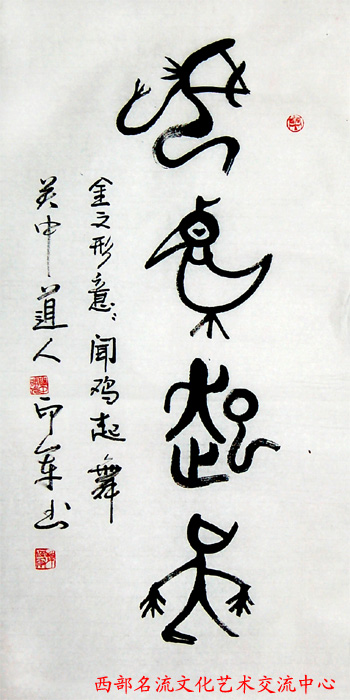 闻鸡起舞
金文形意、闻鸡起舞
关中道人 印军书
西部名流文化艺术交流中心